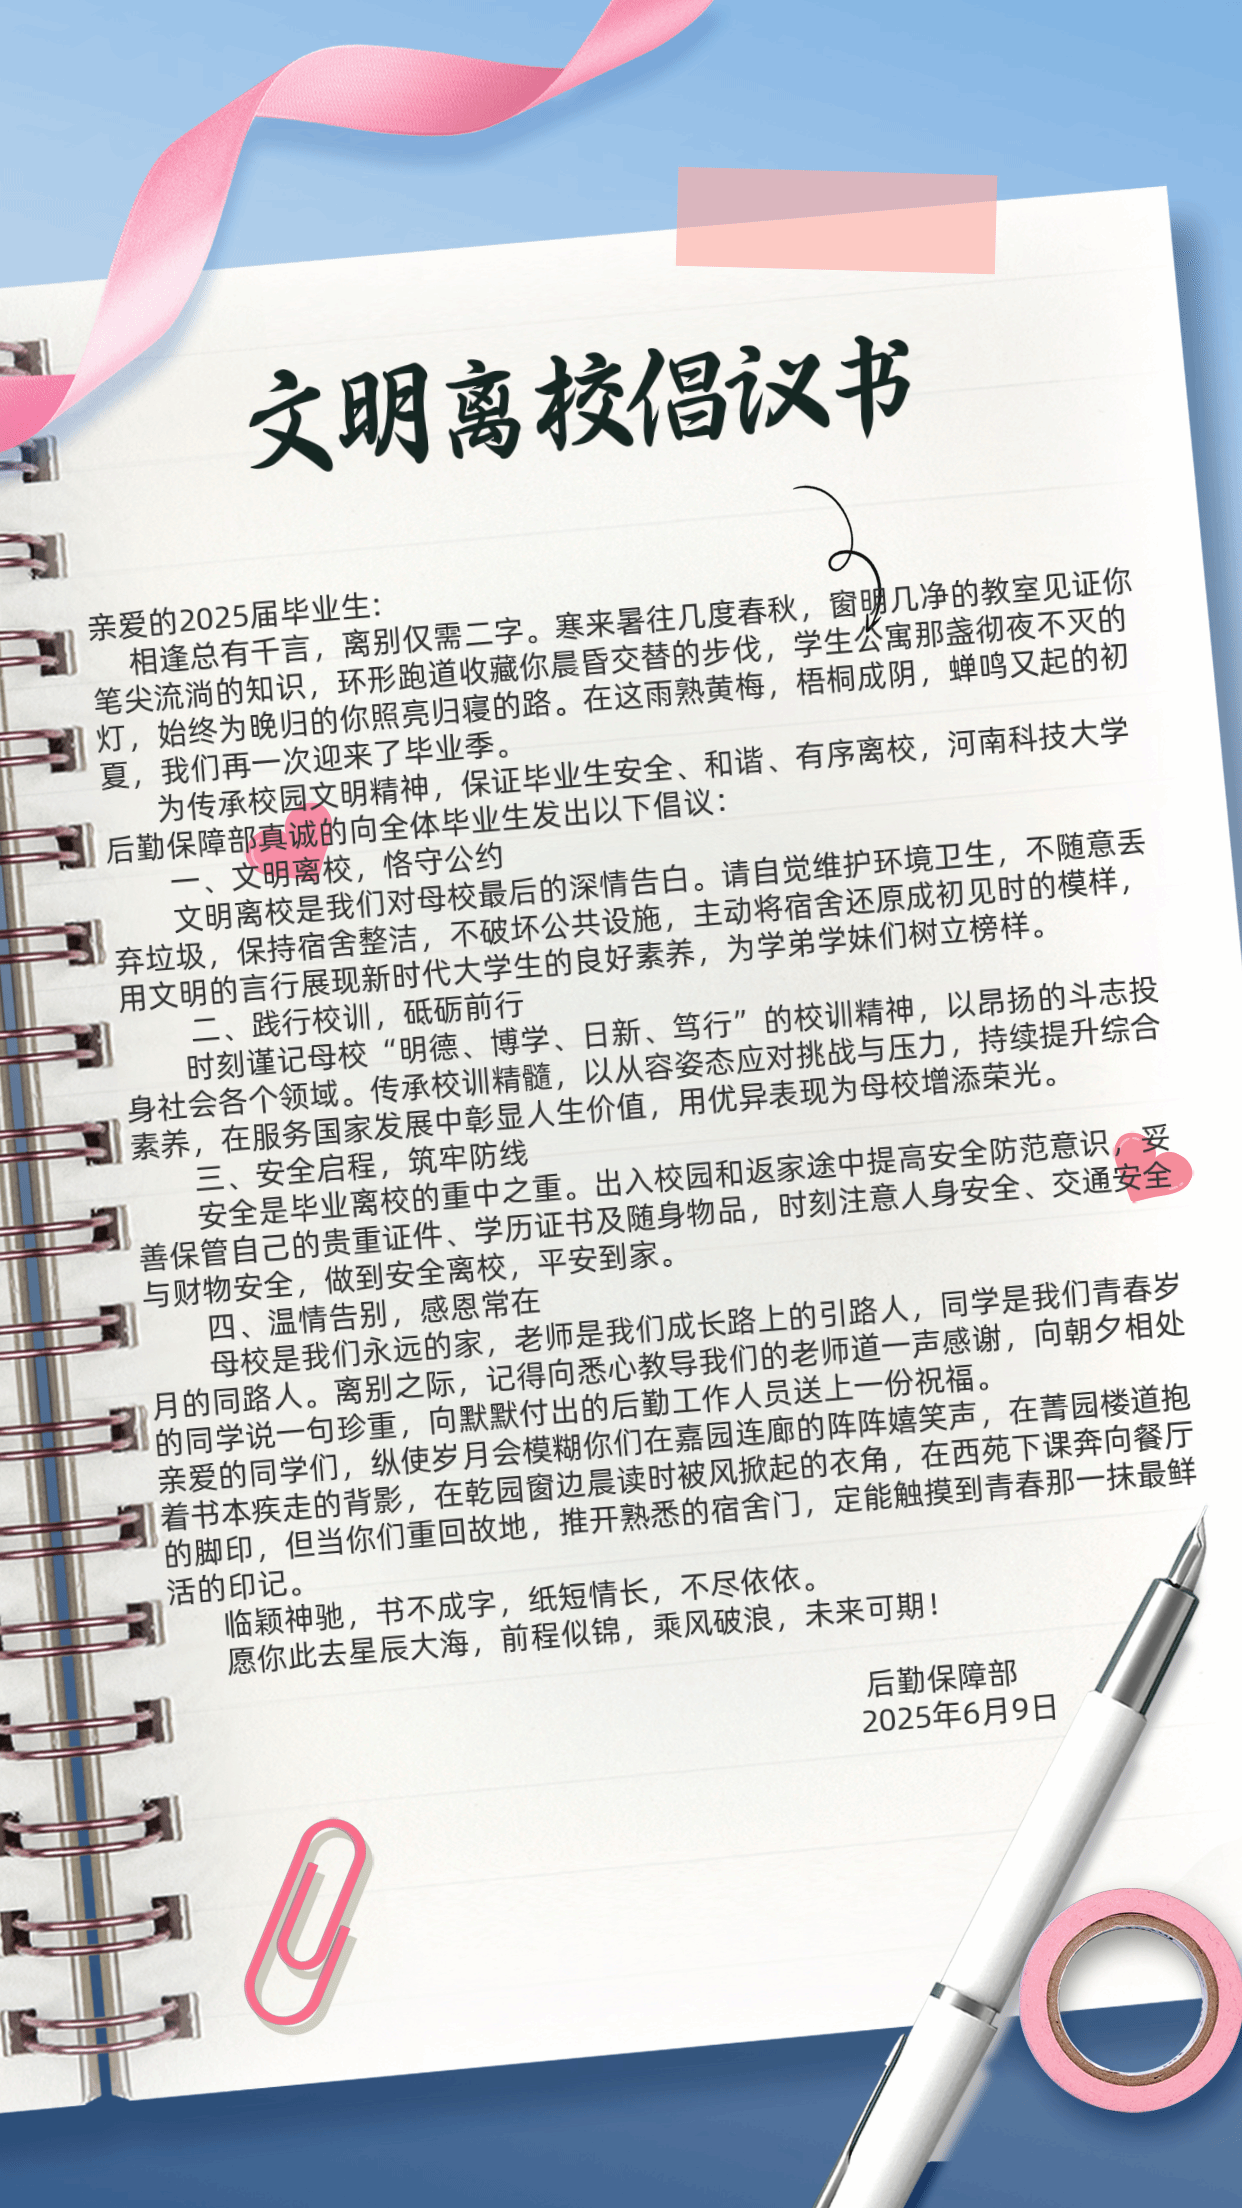 文明离校倡议书
亲爱的2025届毕业生：
相逢总有千言，离别仅需二字。寒来暑往几度春秋，窗明几净的教室见证你
笔尖流淌的知识，环形跑道收藏你晨昏交替的步伐，学生公寓那盏彻夜不灭的
灯，始终为晚归的你照亮归寝的路。在这雨熟黄梅，梧桐成阴，蝉鸣又起的初
夏，我们再一次迎来了毕业季。
为传承校园文明精神，保证毕业生安全、和谐、有序离校，河南科技大学
后勤保障部真诚的向全体毕业生发出以下倡议：
一、文明离校，恪守公约
文明离校是我们对母校最后的深情告白。请自觉维护环境卫生，不随意丢
弃垃圾，保持宿舍整洁，不破坏公共设施，主动将宿舍还原成初见时的模样，
用文明的言行展现新时代大学生的良好素养，为学弟学妹们树立榜样。
二、践行校训，砥砺前行
时刻谨记母校“明德、博学、日新、笃行”的校训精神，以昂扬的斗志投
身社会各个领域。传承校训精髓，以从容姿态应对挑战与压力，持续提升综合
素养，在服务国家发展中彰显人生价值，用优异表现为母校增添荣光。
三、安全启程，筑牢防线
安全是毕业离校的重中之重。出入校园和返家途中提高安全防范意识，妥
善保管自己的贵重证件、学历证书及随身物品，时刻注意人身安全、交通安全
与财物安全，做到安全离校，平安到家。
四、温情告别，感恩常在
母校是我们永远的家，老师是我们成长路上的引路人，同学是我们青春岁
月的同路人。离别之际，记得向悉心教导我们的老师道一声感谢，向朝夕相处
的同学说一句珍重，向默默付出的后勤工作人员送上一份祝福。
亲爱的同学们，纵使岁月会模糊你们在嘉园连廊的阵阵嬉笑声，在菁园楼道抱
着书本疾走的背影，在乾园窗边晨读时被风掀起的衣角，在西苑下课奔向餐厅
的脚印，但当你们重回故地，推开熟悉的宿舍门，定能触摸到青春那一抹最鲜
活的印记。
临颖神驰，书不成字，纸短情长，不尽依依。
愿你此去星辰大海，前程似锦，乘风破浪，未来可期！
后勤保障部
2025年6月9日